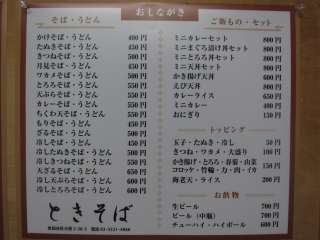 おしながき
そば・うどん
かけそば・うどん 400円
たぬきそば・うどん 450円
きつねそば・うどん 500円
月見そば・うどん 450円
ワカメそば・うどん 500円
とろろそば・うどん 550円
天ぷらそば・うどん 500円
カレーそば・うどん 550円
ちくわ天そば・うどん 550円
もりそば・うどん 450円
ざるそば・うどん 500円
冷しそば・うどん
冷したぬきそば・うどん 500円
冷しきつねそば・うどん 550円
冷しワカメそば・うどん 550円
冷し天ぷらそば・うどん 600円
冷しとろろそば・うどん 600円
ときそば
ご飯もの・セット
ミニカレーセット 800円
ミニまぐろ漬け丼セット 800円
ミニとろろ丼セット 800円
ミニ天丼セット 800円
かき揚げ天丼
えび天丼 800円
カレーライス 650円
ミニカレー 400円
おにぎり 150円
トッピング
玉子・たぬき・冷し 50円
きつね・ワカメ・大盛り 100円
かき揚げ・とろろ・春菊・山菜
コロッケ・竹輪・力・肉・イカ 150円
海老天・ライス 200円
お飲物
生ビール 700円
ビール(中瓶) 700円
チューハイ・ハイボール 600円